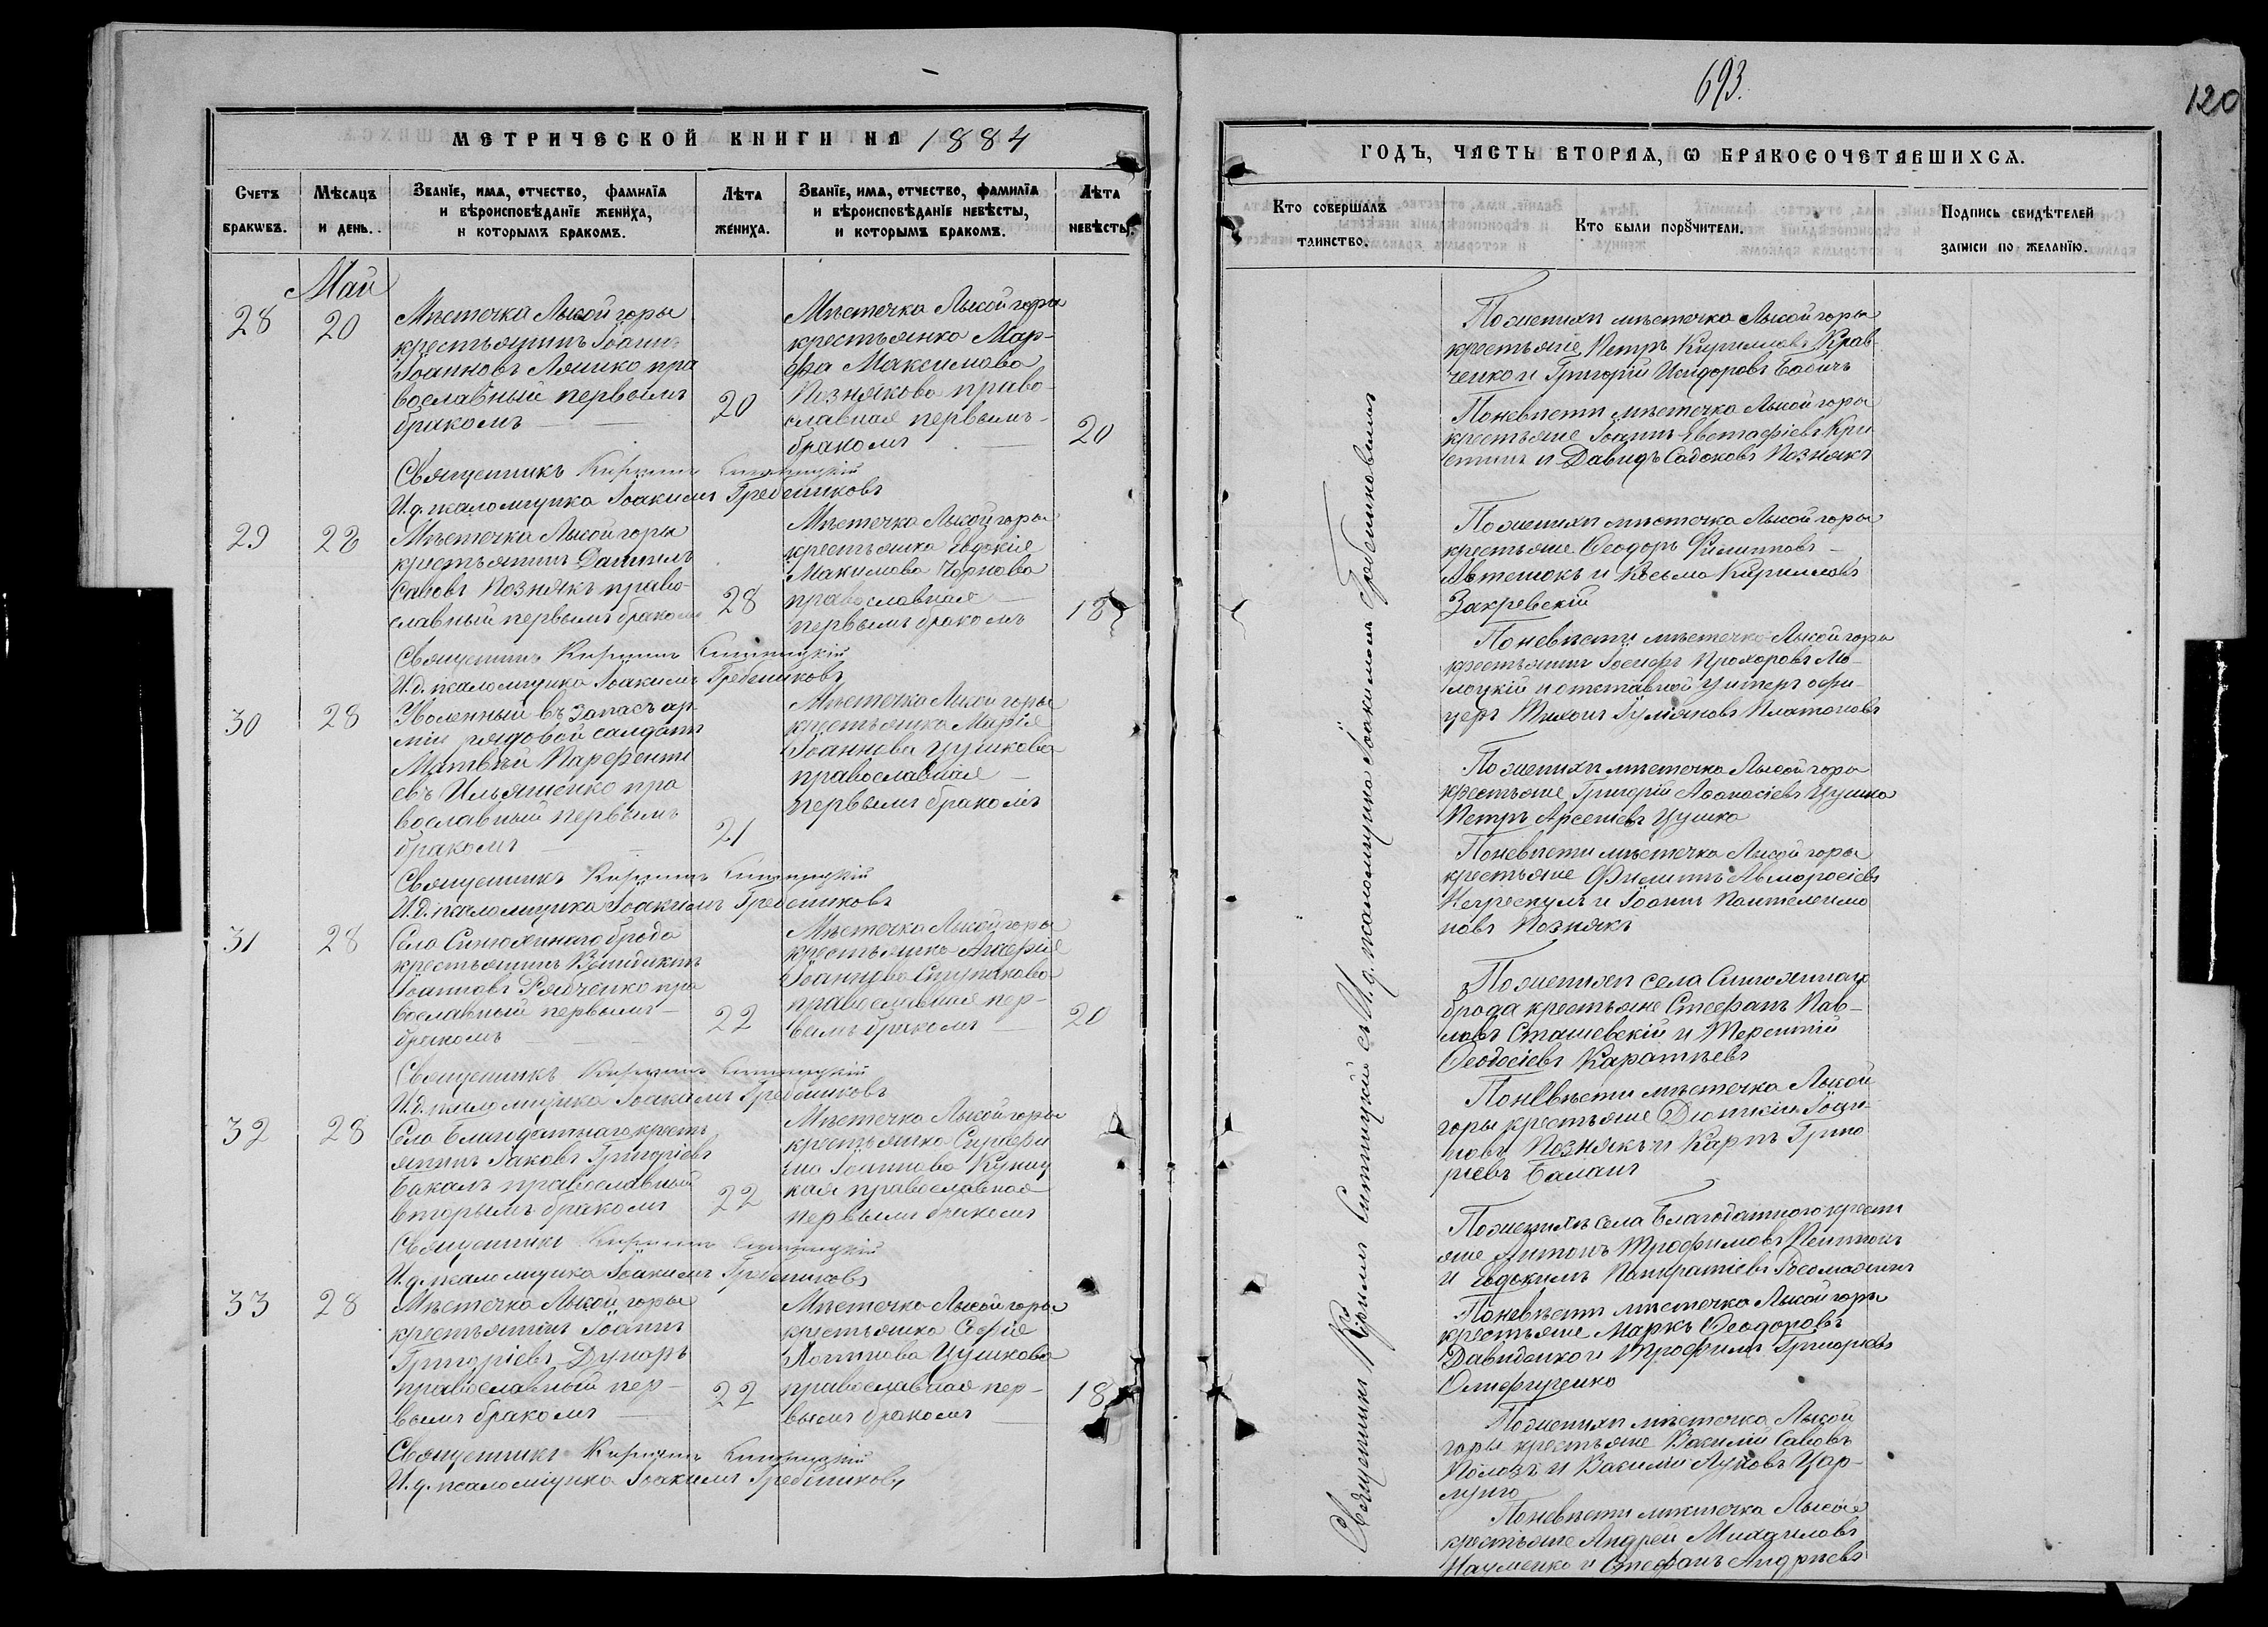 693.
120
МЕТРИЧЕСКОЙ КНИГИ НА 1884
ГОДЪ, ЧАСТЬ ВТОРАЯ, Ѡ БРАКОСОЧЕТАВШИХСЯ.
Счетъ браковъ.
Мѣсяцъ и день.
Званїе, имя, отчество, фамилїя
и вѣроисповѣданїе жениха,
и которымъ бракомъ.
Лѣта жениха.
Званїе, имя, отчество, фамилїя
и вѣроисповѣданїе невѣсты,
и которымъ бракомъ.
Лѣта невѣсты.
Кто совершалъ
таинство.
Кто были порꙋчители.
Подпись свидѣтелей
записи по желанїю.
Май
28
20
Мѣстечка Лысой горы
крестьянинъ Іоаннъ
Іоанновъ Ляшко пра
вославный первымъ
бракомъ
20
Мѣстечка Лысой горы
крестьянка Мар-
фа Максимова
Познякова право-
славная первымъ
бракомъ
20
Священникъ Кириллъ
И.д. псаломщика Іоакимъ Гребенниковъ
29
28
Мѣстечка Лысой горы
крестьянинъ Даніилъ
Савовъ Познякъ право-
славный первымъ бракомъ
28
Мѣстечка Лысой горы
крестьянка Евдокія
Максимова Чорнова
православная
первымъ бракомъ
18
Священникъ Кириллъ
И.д. псаломщика Іоакимъ Гребенниковъ
30
28
Уволенный въ запасъ ар-
міи рядовой солдатъ
Матвѣй Парфенті
евъ Ильяшенко пра
вославный первымъ
бракомъ
21
Мѣстечка Лысой горы
крестьянка Марія
Іоаннова Цушкова
православная
первымъ бракомъ
Священникъ Кириллъ
И.д. псаломщика Іоакимъ Гребенниковъ
31
28
Села Синюхинаго брода
крестьянинъ
Іоанновъ Рябченко пра
вославный первымъ
бракомъ
22
Мѣстечка Лысой горы
крестьянка
Іоаннова Ступакова
православная пер-
вымъ бракомъ
20
Священникъ Кириллъ
И.д. псаломщика Іоакимъ Гребенниковъ
32
28
Села Благодатнаго кресть
янинъ Іаковъ Григоріевъ
Бакалъ православный
вторымъ бракомъ
22
Мѣстечка Лысой горы
крестьянка
Іоаннова
кая православная
первымъ бракомъ
Священникъ Кириллъ
И.д. псаломщика Іоакимъ Гребенниковъ
33
28
Мѣстечка Лысой горы
крестьянинъ Іоаннъ
Григоріевъ Думаръ
православный пер-
вымъ бракомъ
22
Мѣстечка Лысой горы
крестьянка Софія
Логинова Цушкова
православная пер-
вымъ бракомъ
18
Священникъ Кириллъ
И.д. псаломщика Іоакимъ Гребенниковъ
Священникъ Кириллъ съ И.д. псаломщика Іоакимомъ Гребенниковымъ
По женихѣ мѣстечка Лысой горы
крестьяне Петръ Кирилловъ Крав-
ченко и Григорій Исидоровъ Бабичъ
По невѣстѣ мѣстечка Лысой горы
крестьяне Іоаннъ Евстафіевъ
и Давидъ Садоковъ Познякъ
По женихѣ мѣстечка Лысой горы
крестьяне Ѳеодоръ Филипповъ
и Косьма Кирилловъ
Закревскій
По невѣстѣ мѣстечка Лысой горы
крестьянинъ Іосифъ Прохоровъ Мо-
лоцкій и отставной унтеръ офи-
церъ Тихонъ Платоновъ
По женихѣ мѣстечка Лысой горы
крестьяне Григорій Аѳанасіевъ Цушко
Петръ Арсеніевъ Цушко
По невѣстѣ мѣстечка Лысой горы
крестьяне Филиппъ
Негрескулъ и Іоаннъ Пантелеимо
новъ Познякъ
По женихѣ села Синюхинаго
брода крестьяне Стефанъ Пав-
ловъ Сташевскій и Терентій
Ѳеодосіевъ
По невѣстѣ мѣстечка Лысой
горы крестьяне Іоан-
новъ Познякъ и Карпъ Григо
ріевъ Баланъ
По женихѣ села Благодатного кресть
яне Антонъ Трофимовъ
и Евдокимъ Панкратіевъ
По невѣстѣ мѣстечка Лысой горы
крестьяне Маркъ Ѳеодоровъ
Давиденко и Трофимъ Григоріевъ
По женихѣ мѣстечка Лысой
горы крестьяне Василій Савовъ
и Василій Луковъ
По невѣстѣ мѣстечка Лысой
крестьяне Андрей Михаиловъ
Науменко и Стефанъ Андріевъ